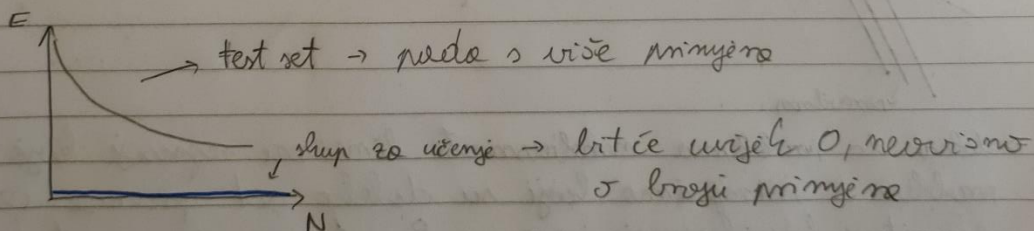 E
test set → pada s više primjera
skup za učenje → bit će uvijek 0, neovisno
o broju primjera
N